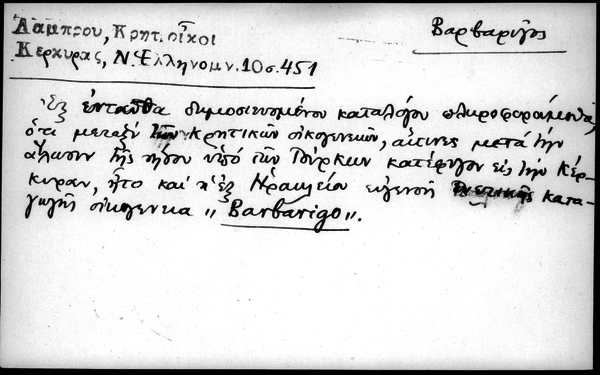 Λάμπρου, Κρητ. οἶκοι
Βαρβαρῖγος
Κερκύρας, Ν. Ἑλληνομν. 10 σ. 451
Ἐξ ἐνταῦθα δημοσιευομένου καταλόγου πληροφορούμεθα,
ὅτι μεταξὺ τῶν Κρητικῶν οἰκογενειῶν, αἵτινες μετὰ τὴν
ἅλωσιν τῆς νήσου ὑπὸ τῶν Τούρκων κατέφυγον εἰς τὴν Κέρ-
κυραν, ἦτο καὶ ἡ ἐξ Ἡρακλείου εὐγενὴς Ἑνετικῆς κατα-
γωγῆς οἰκογένεια „Barbarigo".